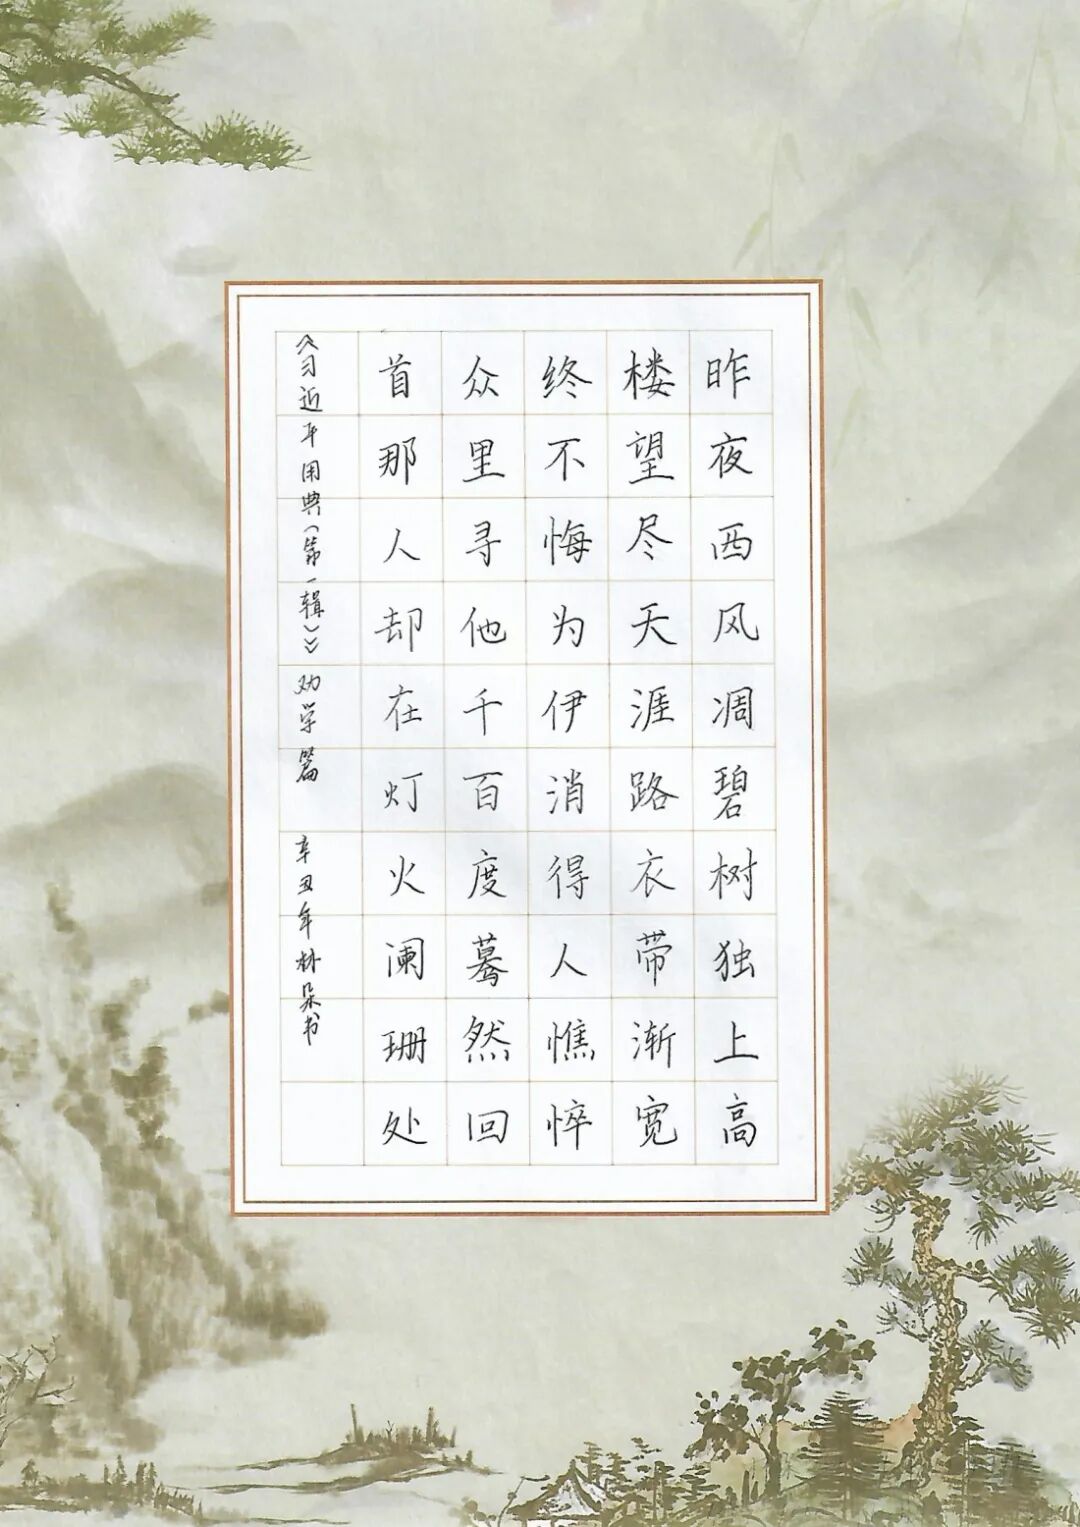 昨夜西风凋碧树独上高
楼望尽天涯路衣带渐宽
终不悔为伊消得人憔悴
众里寻他千百度蓦然回
首那人却在灯火阑珊处
《习近平用典(第一辑)》劝学篇 辛丑年林朵书